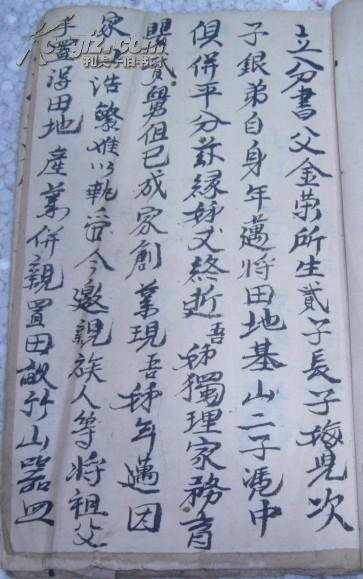 立分書父金萬所生貳子長子梅見次
子銀弟自身年邁將田地基山二子凴中
俱併平分茲緣姊丈終逝吾姊獨理家務育
貳甥但已成家創業現吾姊年邁因
家浩繁難以執管今邀親族人等將祖父
手置淂田地產業併親置田畝竹山器皿